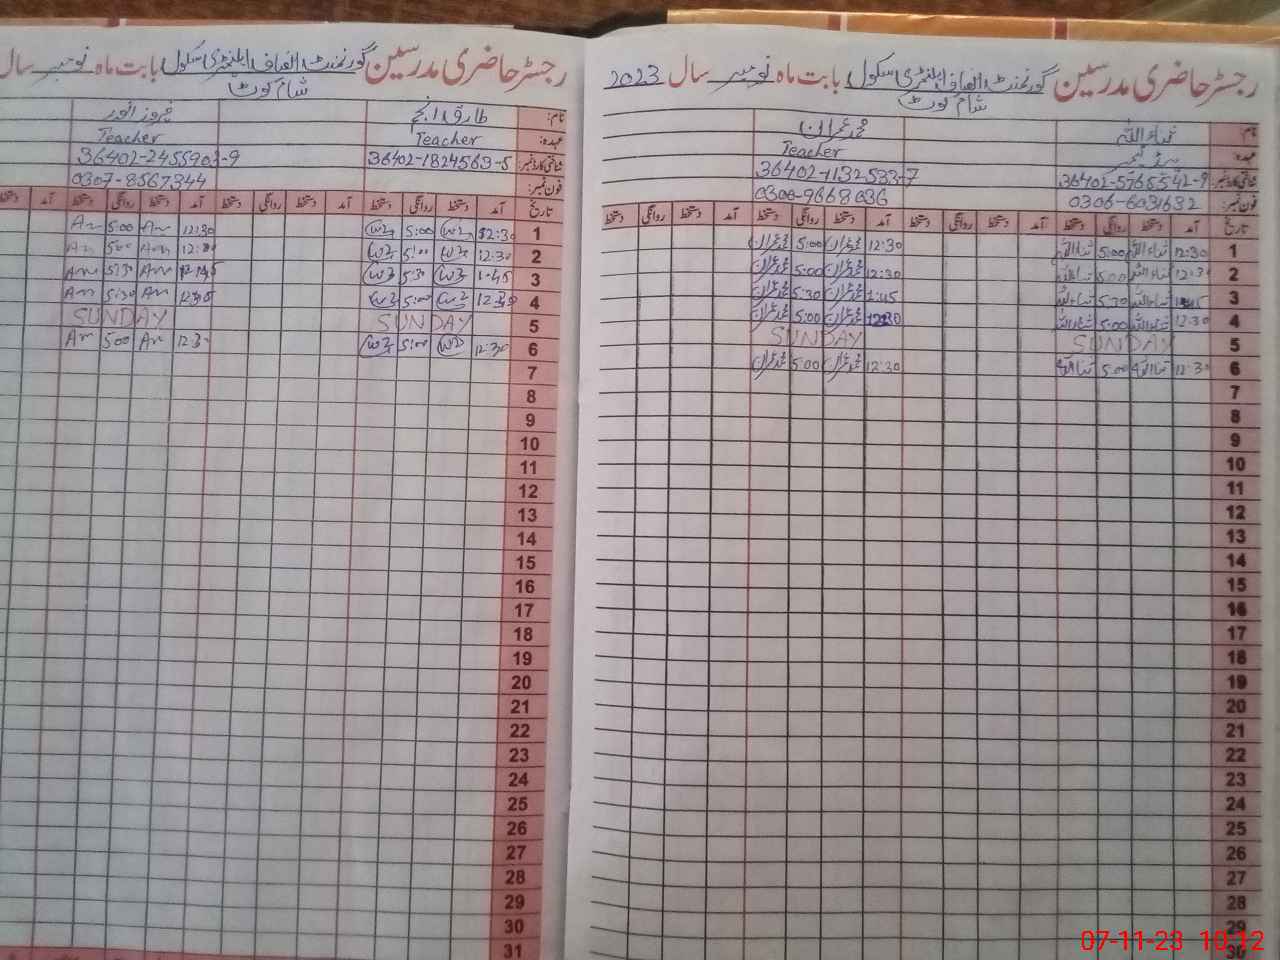 رجسٹر حاضری مدرسین گورنمنٹ الفاف ایلیمنٹری سکول بابت ماہ نومبر سال 2023
شام کوٹ
نام: ثناء اللہ محمد عمران
عہدہ: Teacher
شناختی کارڈ نمبر: 36402-5765542-9 36402-1132533-7
فون نمبر: 0306-6031632 0300-9668036
تاریخ آمد دستخط روانگی دستخط آمد دستخط روانگی دستخط آمد دستخط روانگی دستخط آمد دستخط روانگی دستخط
1 12:30 ثناء اللہ 5:00 ثناء اللہ 12:30 محمد عمران 5:00 محمد عمران
2 12:30 ثناء اللہ 5:00 ثناء اللہ 12:30 محمد عمران 5:00 محمد عمران
3 ثناء اللہ 5:30 ثناء اللہ 1:45 محمد عمران 5:30 محمد عمران
4 12:30 ثناء اللہ 5:00 ثناء اللہ 12:30 محمد عمران 5:00 محمد عمران
5 SUNDAY SUNDAY
6 12:30 ثناء اللہ 5:00 ثناء اللہ 12:30 محمد عمران 5:00 محمد عمران
7
8
9
10
11
12
13
14
15
16
17
18
19
20
21
22
23
24
25
26
27
28
29
30
رجسٹر حاضری مدرسین گورنمنٹ الفاف ایلیمنٹری سکول بابت ماہ نومبر سال
شام کوٹ
نام: طارق انجم فیروز انور
عہدہ: Teacher Teacher
شناختی کارڈ نمبر: 36402-1824563-5 36402-2455903-9
فون نمبر: 0307-8567344
تاریخ آمد دستخط روانگی دستخط آمد دستخط روانگی دستخط آمد دستخط روانگی دستخط آمد
1 12:30 5:00 12:30 5:00
2 12:30 5:00 12:30 5:00
3 1:45 5:30 5:30
4 12:30 5:00 5:30
5 SUNDAY SUNDAY
6 12:30 5:00 12:30 5:00
7
8
9
10
11
12
13
14
15
16
17
18
19
20
21
22
23
24
25
26
27
28
29
30
31
07-11-23 10:12